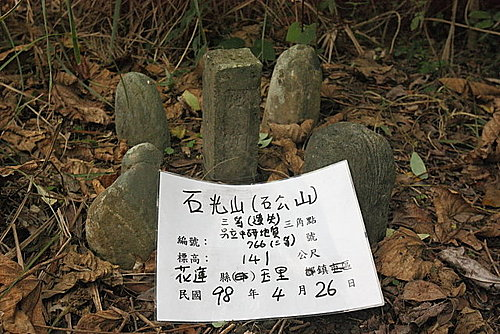 石光山(石公山)
三等(遺失)三角點
另立中研地質
編號: 766(二等) 號
標高: 141 公尺
花蓮 縣(市) 玉里 鄉鎮市區
民國 98 年 4 月 26 日